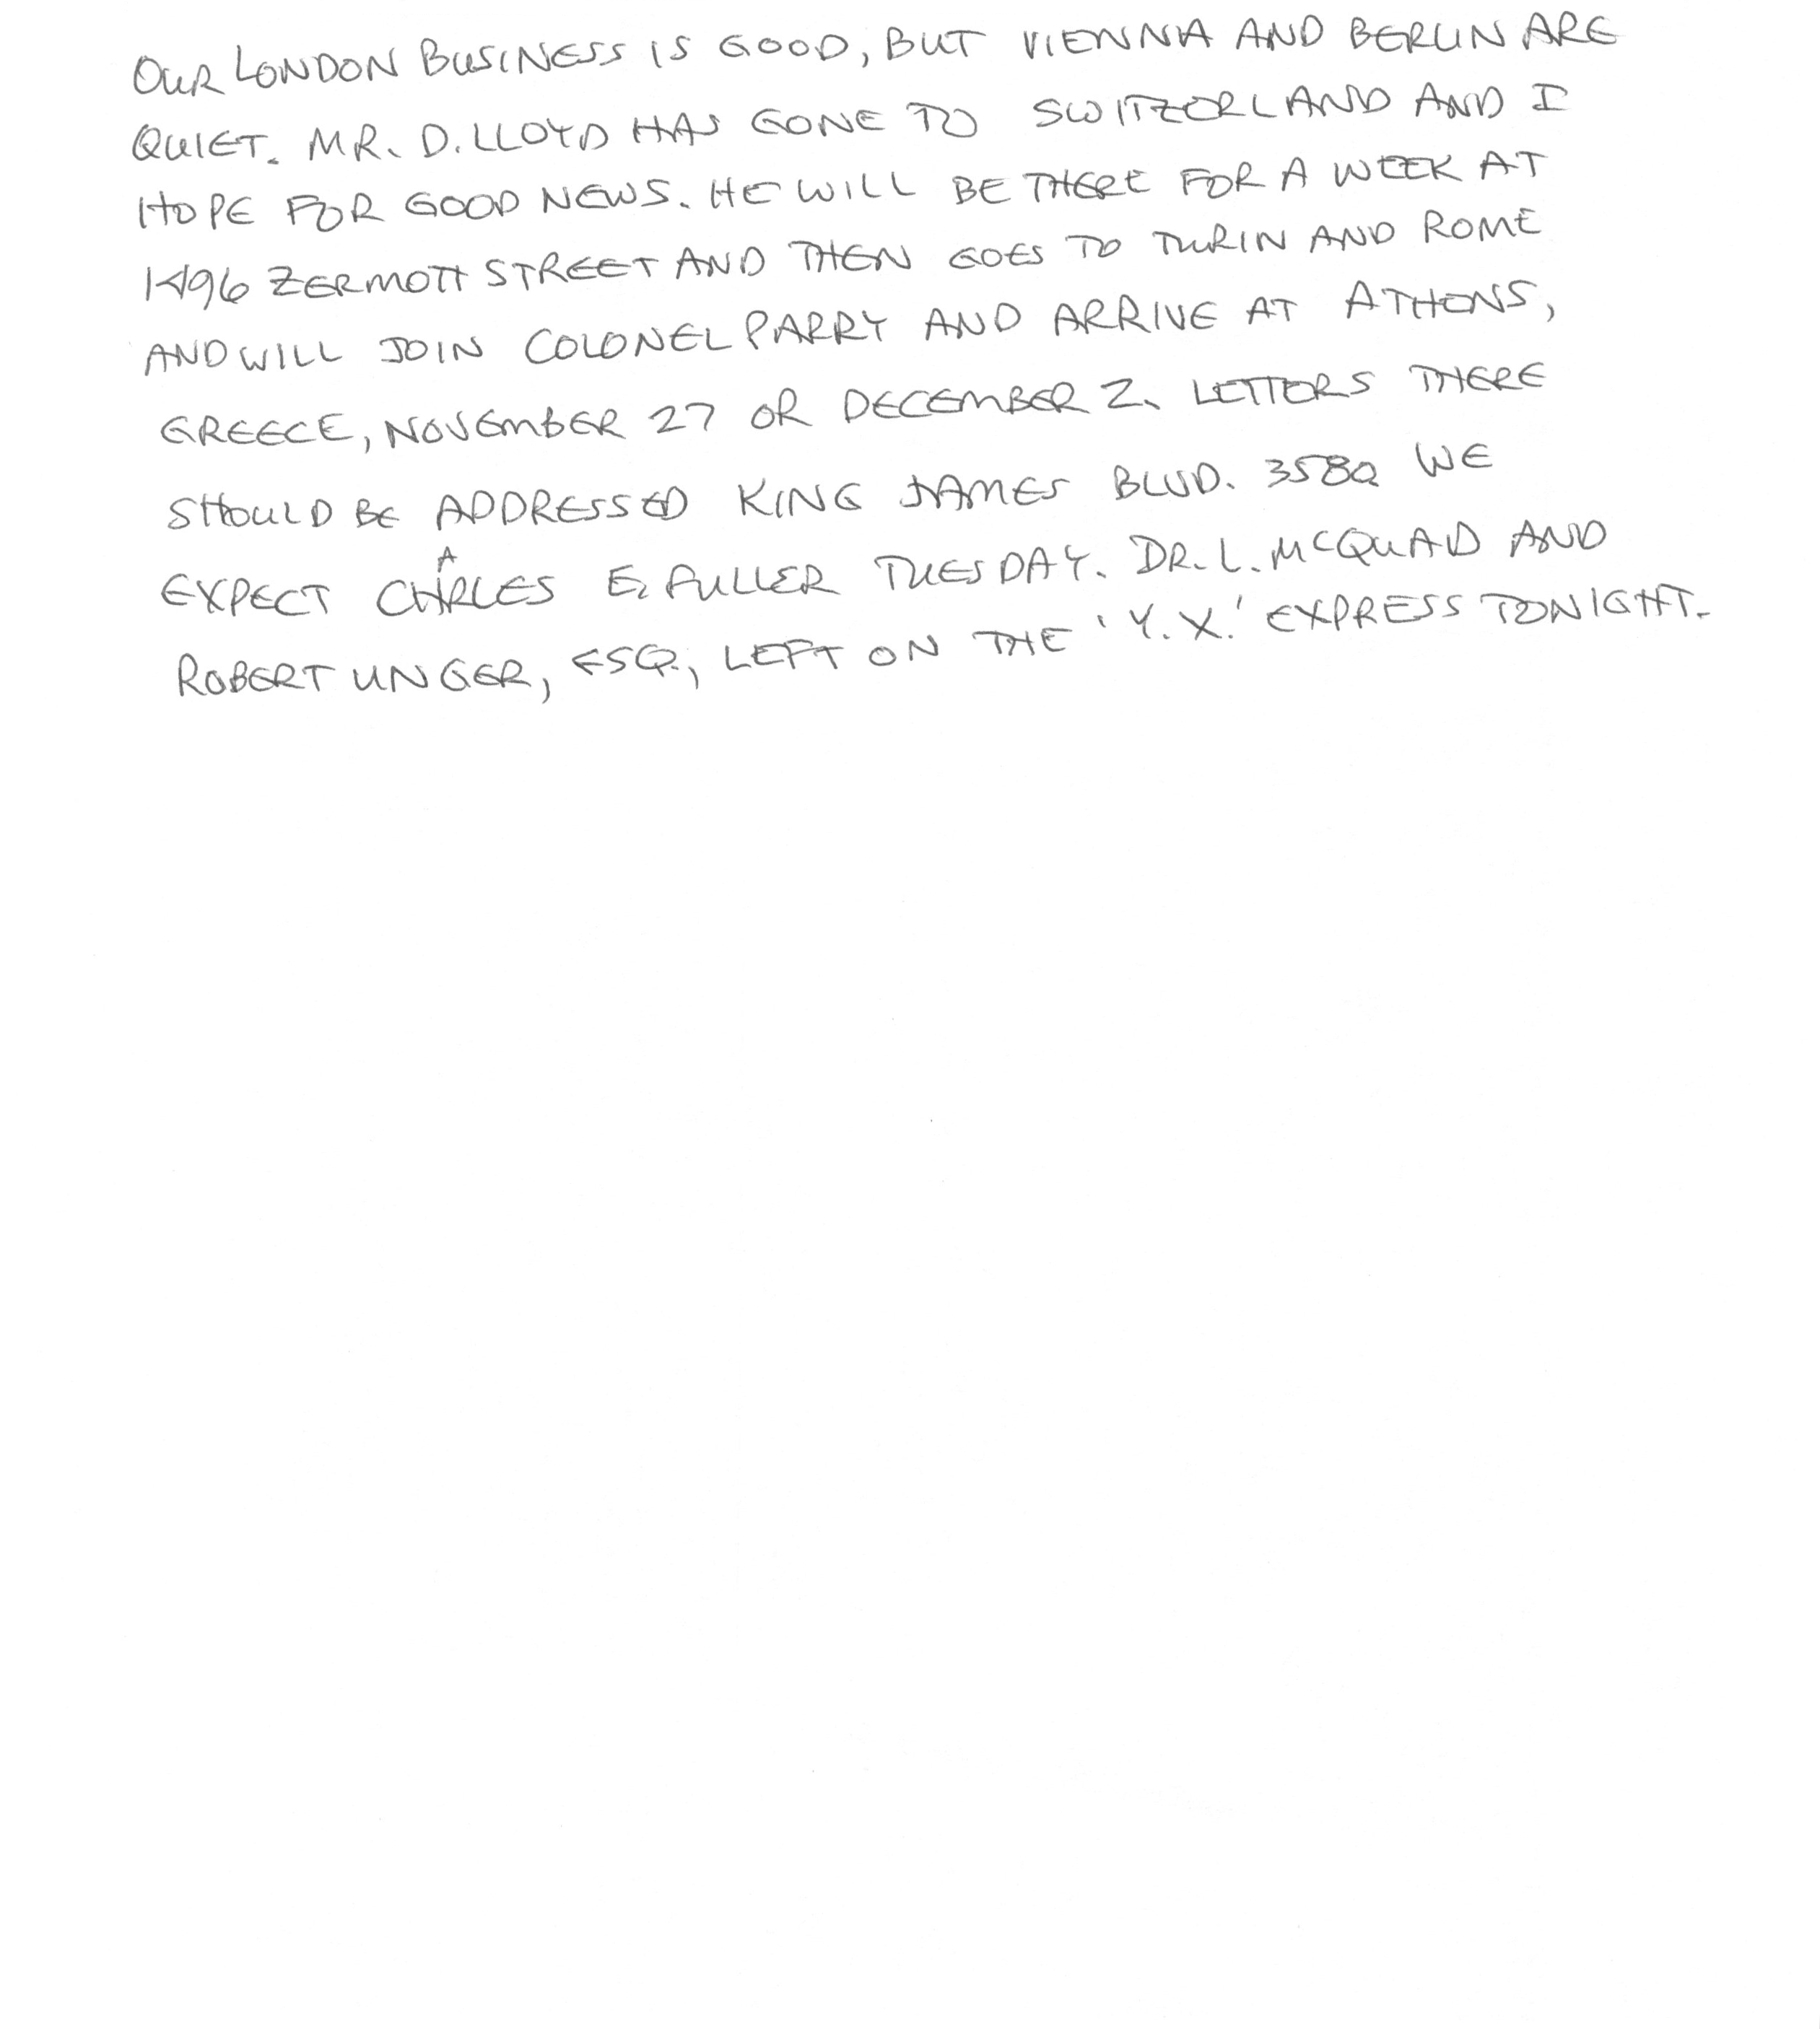 OUR LONDON BUSINESS IS GOOD, BUT VIENNA AND BERLIN ARE
QUIET. MR. D. LLOYD HAS GONE TO SWITZERLAND AND I
HOPE FOR GOOD NEWS. HE WILL BE THERE FOR A WEEK AT
1496 ZERMOTT STREET AND THEN GOES TO TURIN AND ROME
AND WILL JOIN COLONEL PARRY AND ARRIVE AT ATHENS,
GREECE, NOVEMBER 27 OR DECEMBER 2. LETTERS THERE
SHOULD BE ADDRESSED KING JAMES BLVD. 3580. WE
EXPECT CHARLES E. FULLER TUESDAY. DR. L. MCQUAD AND
ROBERT UNGER, ESQ., LEFT ON THE 'Y.X.' EXPRESS TONIGHT.